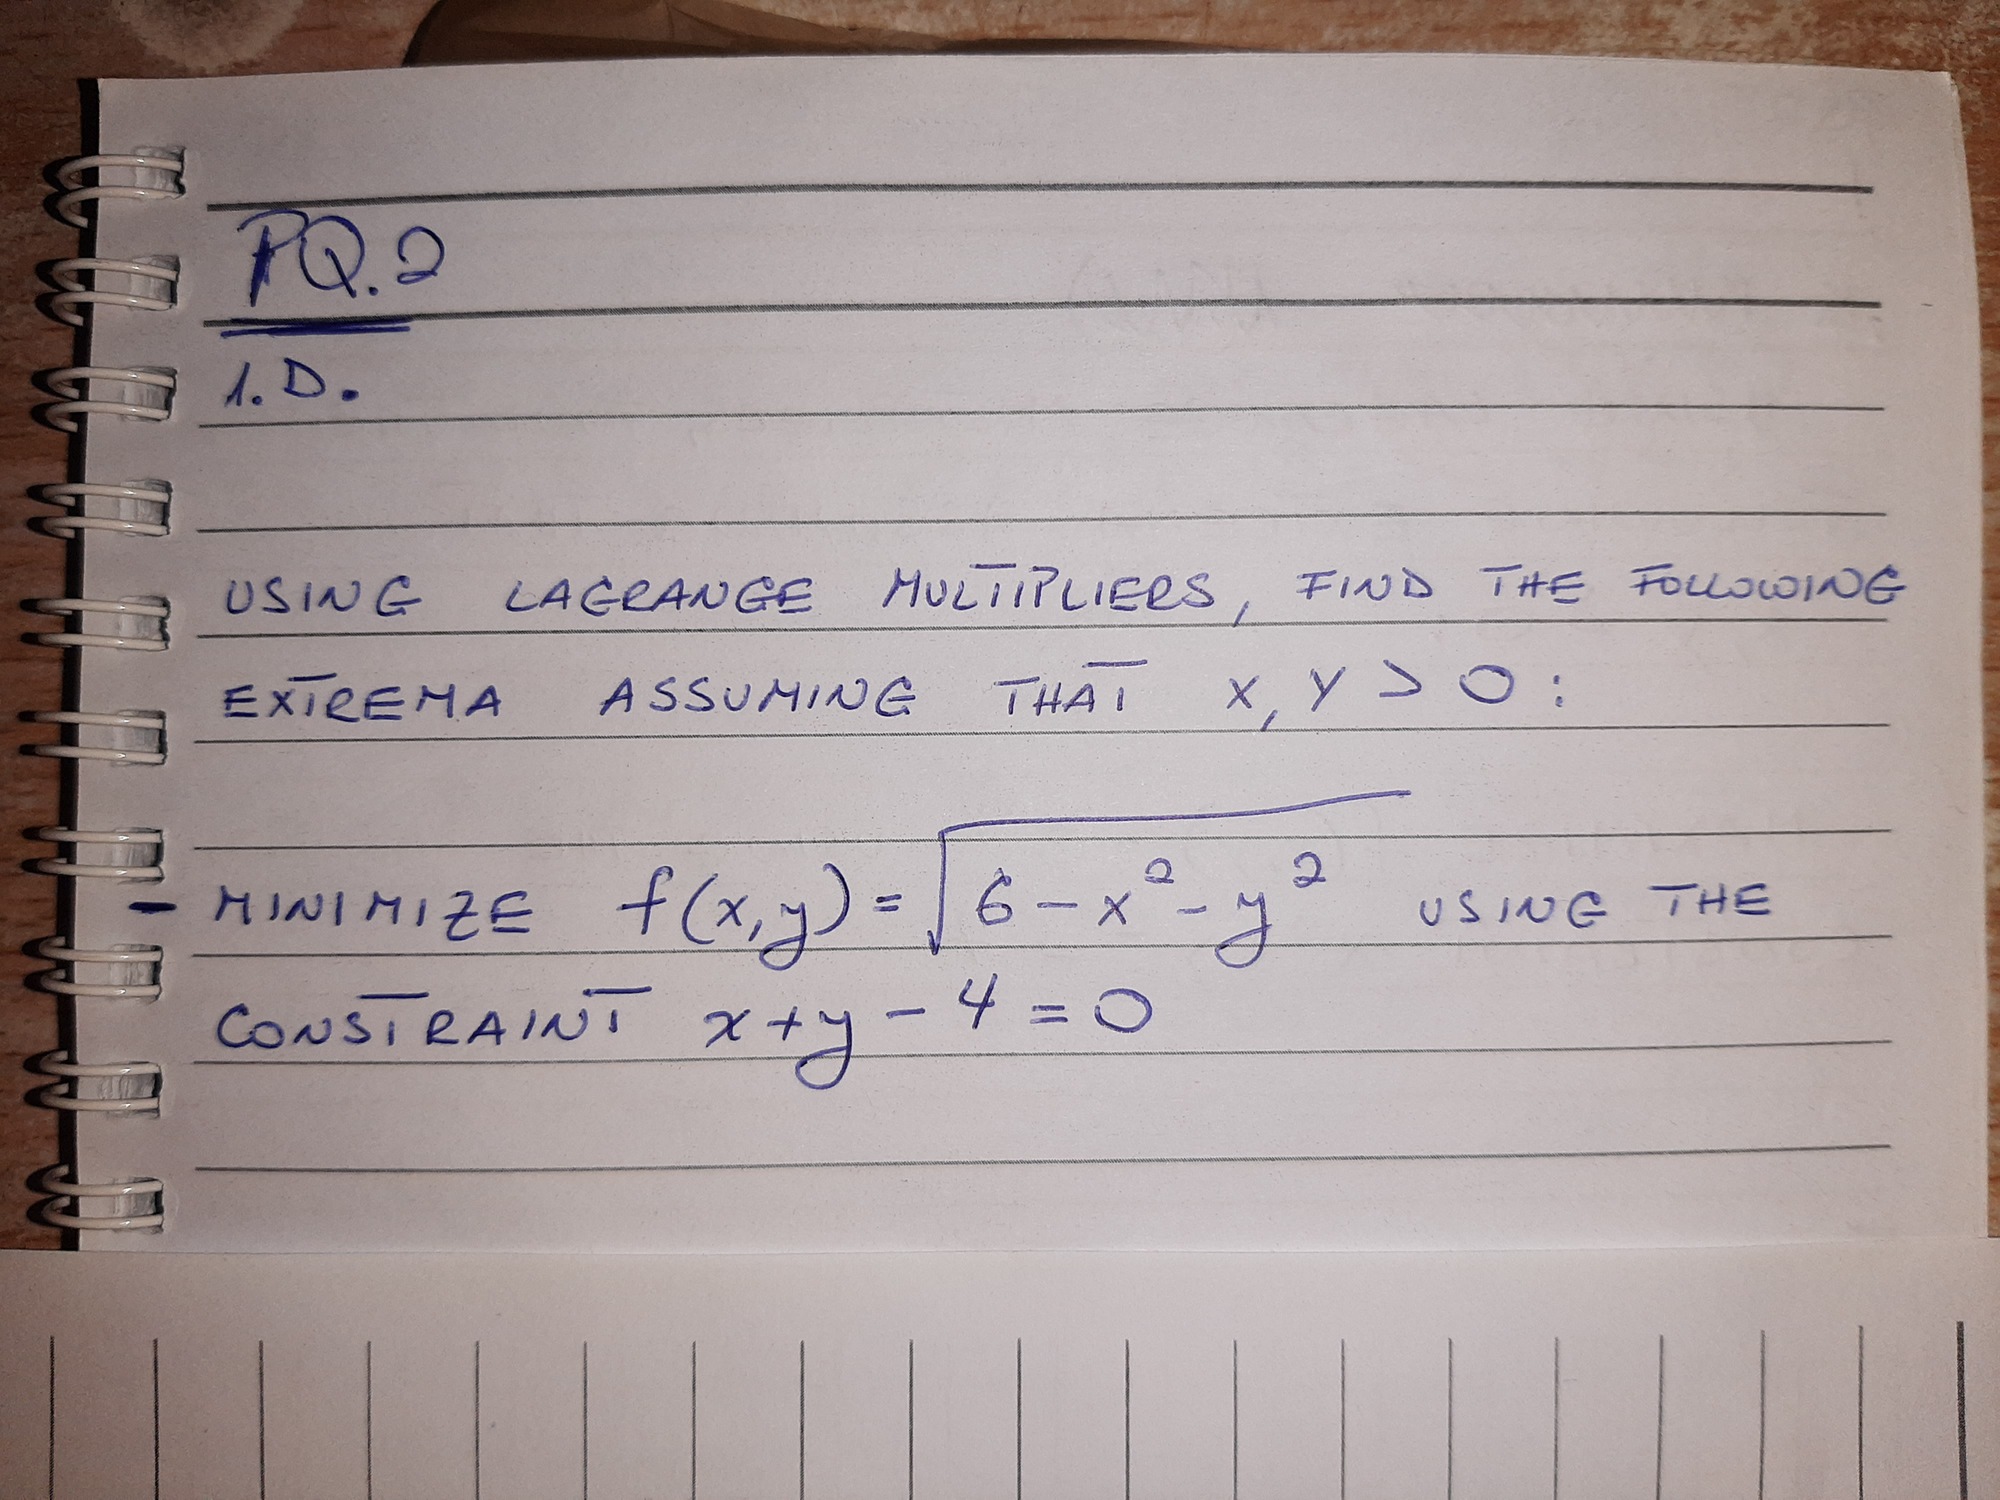 PQ.2
1.D.
USING LAGRANGE MULTIPLIERS, FIND THE FOLLOWING
EXTREMA ASSUMING THAT x, y > 0:
- MINIMIZE f(x,y) = √(6 - x² - y²) USING THE
CONSTRAINT x + y - 4 = 0